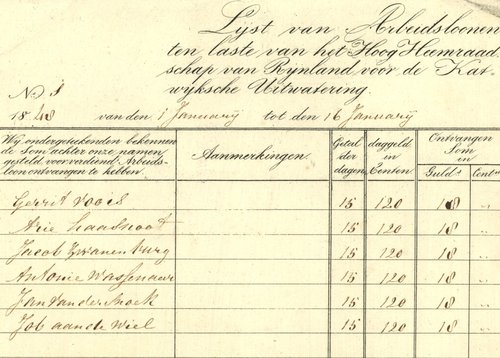 Lijst van Arbeidsloonen
ten laste van het Hoog Heemraad
schap van Rynland voor de Kat-
wyksche Uitwatering.
N.o 1
1548 van den 1 Januarij tot den 16 Januarij
Wij ondergeteekenden bekennen
de Som achter onze namen
gesteld voor verdiend Arbeids-
loon ontvangen te hebben.
Aanmerkingen.
Getal
der
dagen.
daggeld
in
Centen
Ontvangen
Som
in
Guld.s Cent.n
Gerrit Vooÿs 15 120 18 "
Arie Haasnoot 15 120 18 "
Jacob Zwanenburg 15 120 18 "
Antonie Wassenaar 15 120 18 "
Jan van der Snoek 15 120 18 "
Job aande Wiel 15 120 18 "